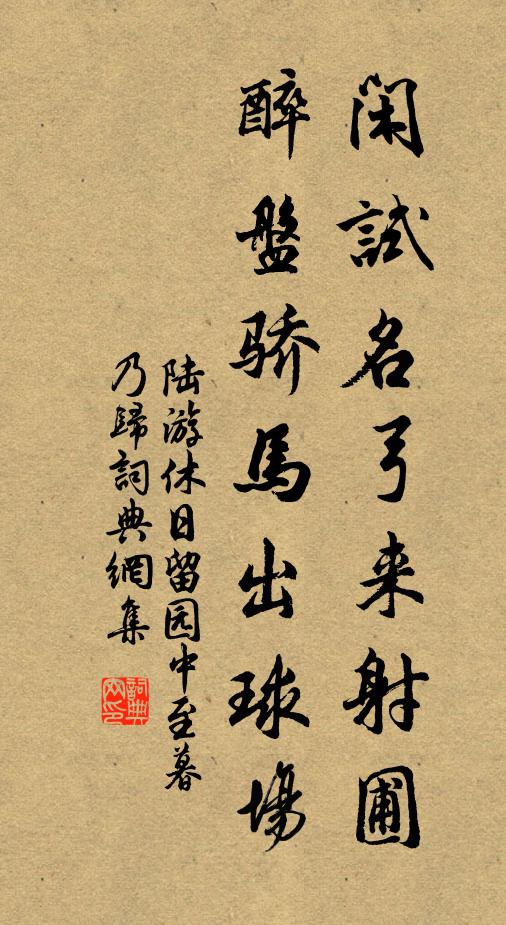 闲試名弓来射圃
醉盤骄馬出球場
陆游休日留园中至暮
乃歸詞典網集
詞典
网印